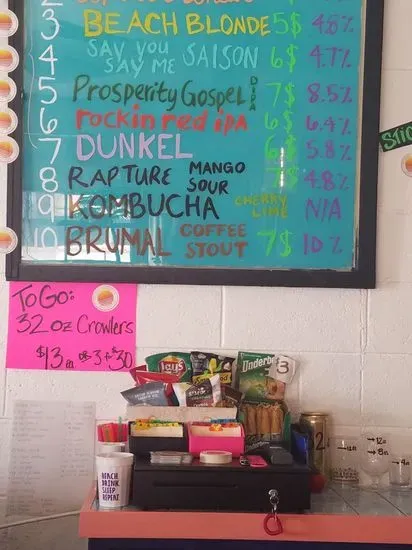 3 BEACH BLONDE 5$ 4.8%
4 SAY YOU SAY ME SAISON 6$ 4.7%
5 Prosperity Gospel DIPA 7$ 8.5%
6 rockin red iPA 6$ 6.4%
7 DUNKEL 6$ 5.8%
8 RAPTURE MANGO SOUR 7$ 4.8%
9 KOMBUCHA CHERRY LIME N/A
10 BRUMAL COFFEE STOUT 7$ 10%
STIC
To Go:
32 oz Crowlers
$13 ea OR 3 for $30
Lay's
Underbe
$3
BEACH
DRINK
SLEEP
REPEAT